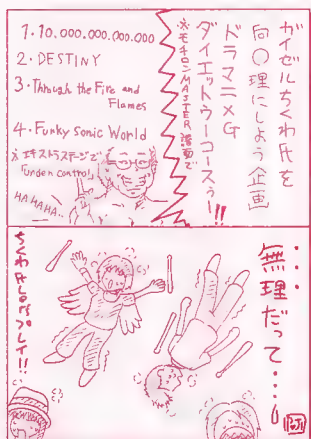 ガイゼルちくわ氏を
向〇理にしよう企画
ドラマニメG
ダイエットウーコースぅー!!
※モチロンMASTER譜面で
1・10,000,000,000,000
2・DESTINY
3・Through the Fire and
Flames
4・Funky Sonic World
※エキストラステージで
「under control」
HA HA HA..
無理だって・・・!
ちくわ氏LOVEプレイ!!